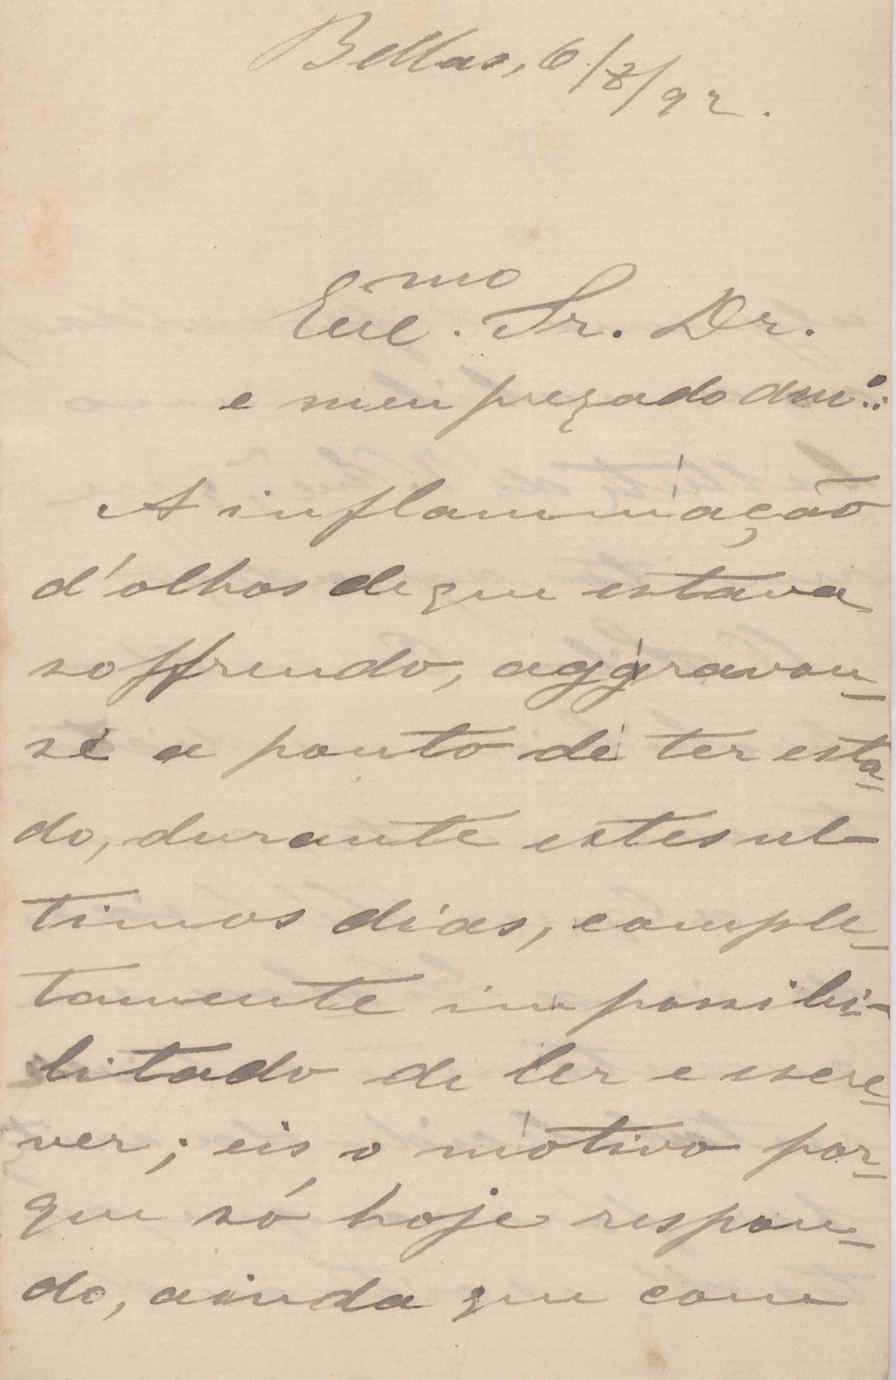 Bellas, 6/8/92.
Exc.mo Sr. Dr.
e meu prezado am.º:
A inflammação
d'olhos de que estava
soffrendo, aggravou-
se a ponto de ter esta-
do, durante estes ul-
timos dias, comple-
tamente impossibi-
litado de ler e escre-
ver; eis o motivo por-
que só hoje respon-
do, ainda que com